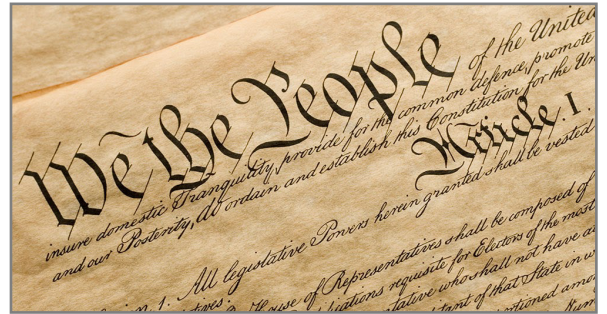 We the People of the United
insure domestic Tranquility, provide for the common defence, promote
and our Posterity, do ordain and establish this Constitution for the Un
Article. I.
n. 1. All legislative Powers herein granted shall be vested
House of Representatives shall be composed of
ications requisite for Electors of the most
tative who shall not have a
itant of that State in w